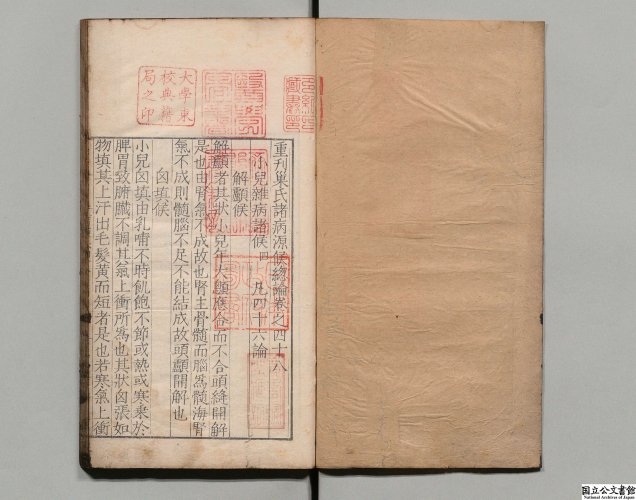 重刋巢氏諸病源候總論卷之四十八
小兒雜病諸候四 凡四十六論
解顱候
解顱者其狀小兒年大顱應合而不合頭縫開解
是也由腎氣不成故也腎主骨髓而腦爲髓海腎
氣不成則髓腦不足不能結成故頭顱開解也
囟填候
小兒囟填由乳哺不時飢飽不節或熱或寒乘於
脾胃致腑臟不調其氣上衝所爲也其狀囟張如
物填其上汗出毛髮黃而短者是也若寒氣上衝
大學東
校典籍
局之印
国立公文書館
National Archives of Japan